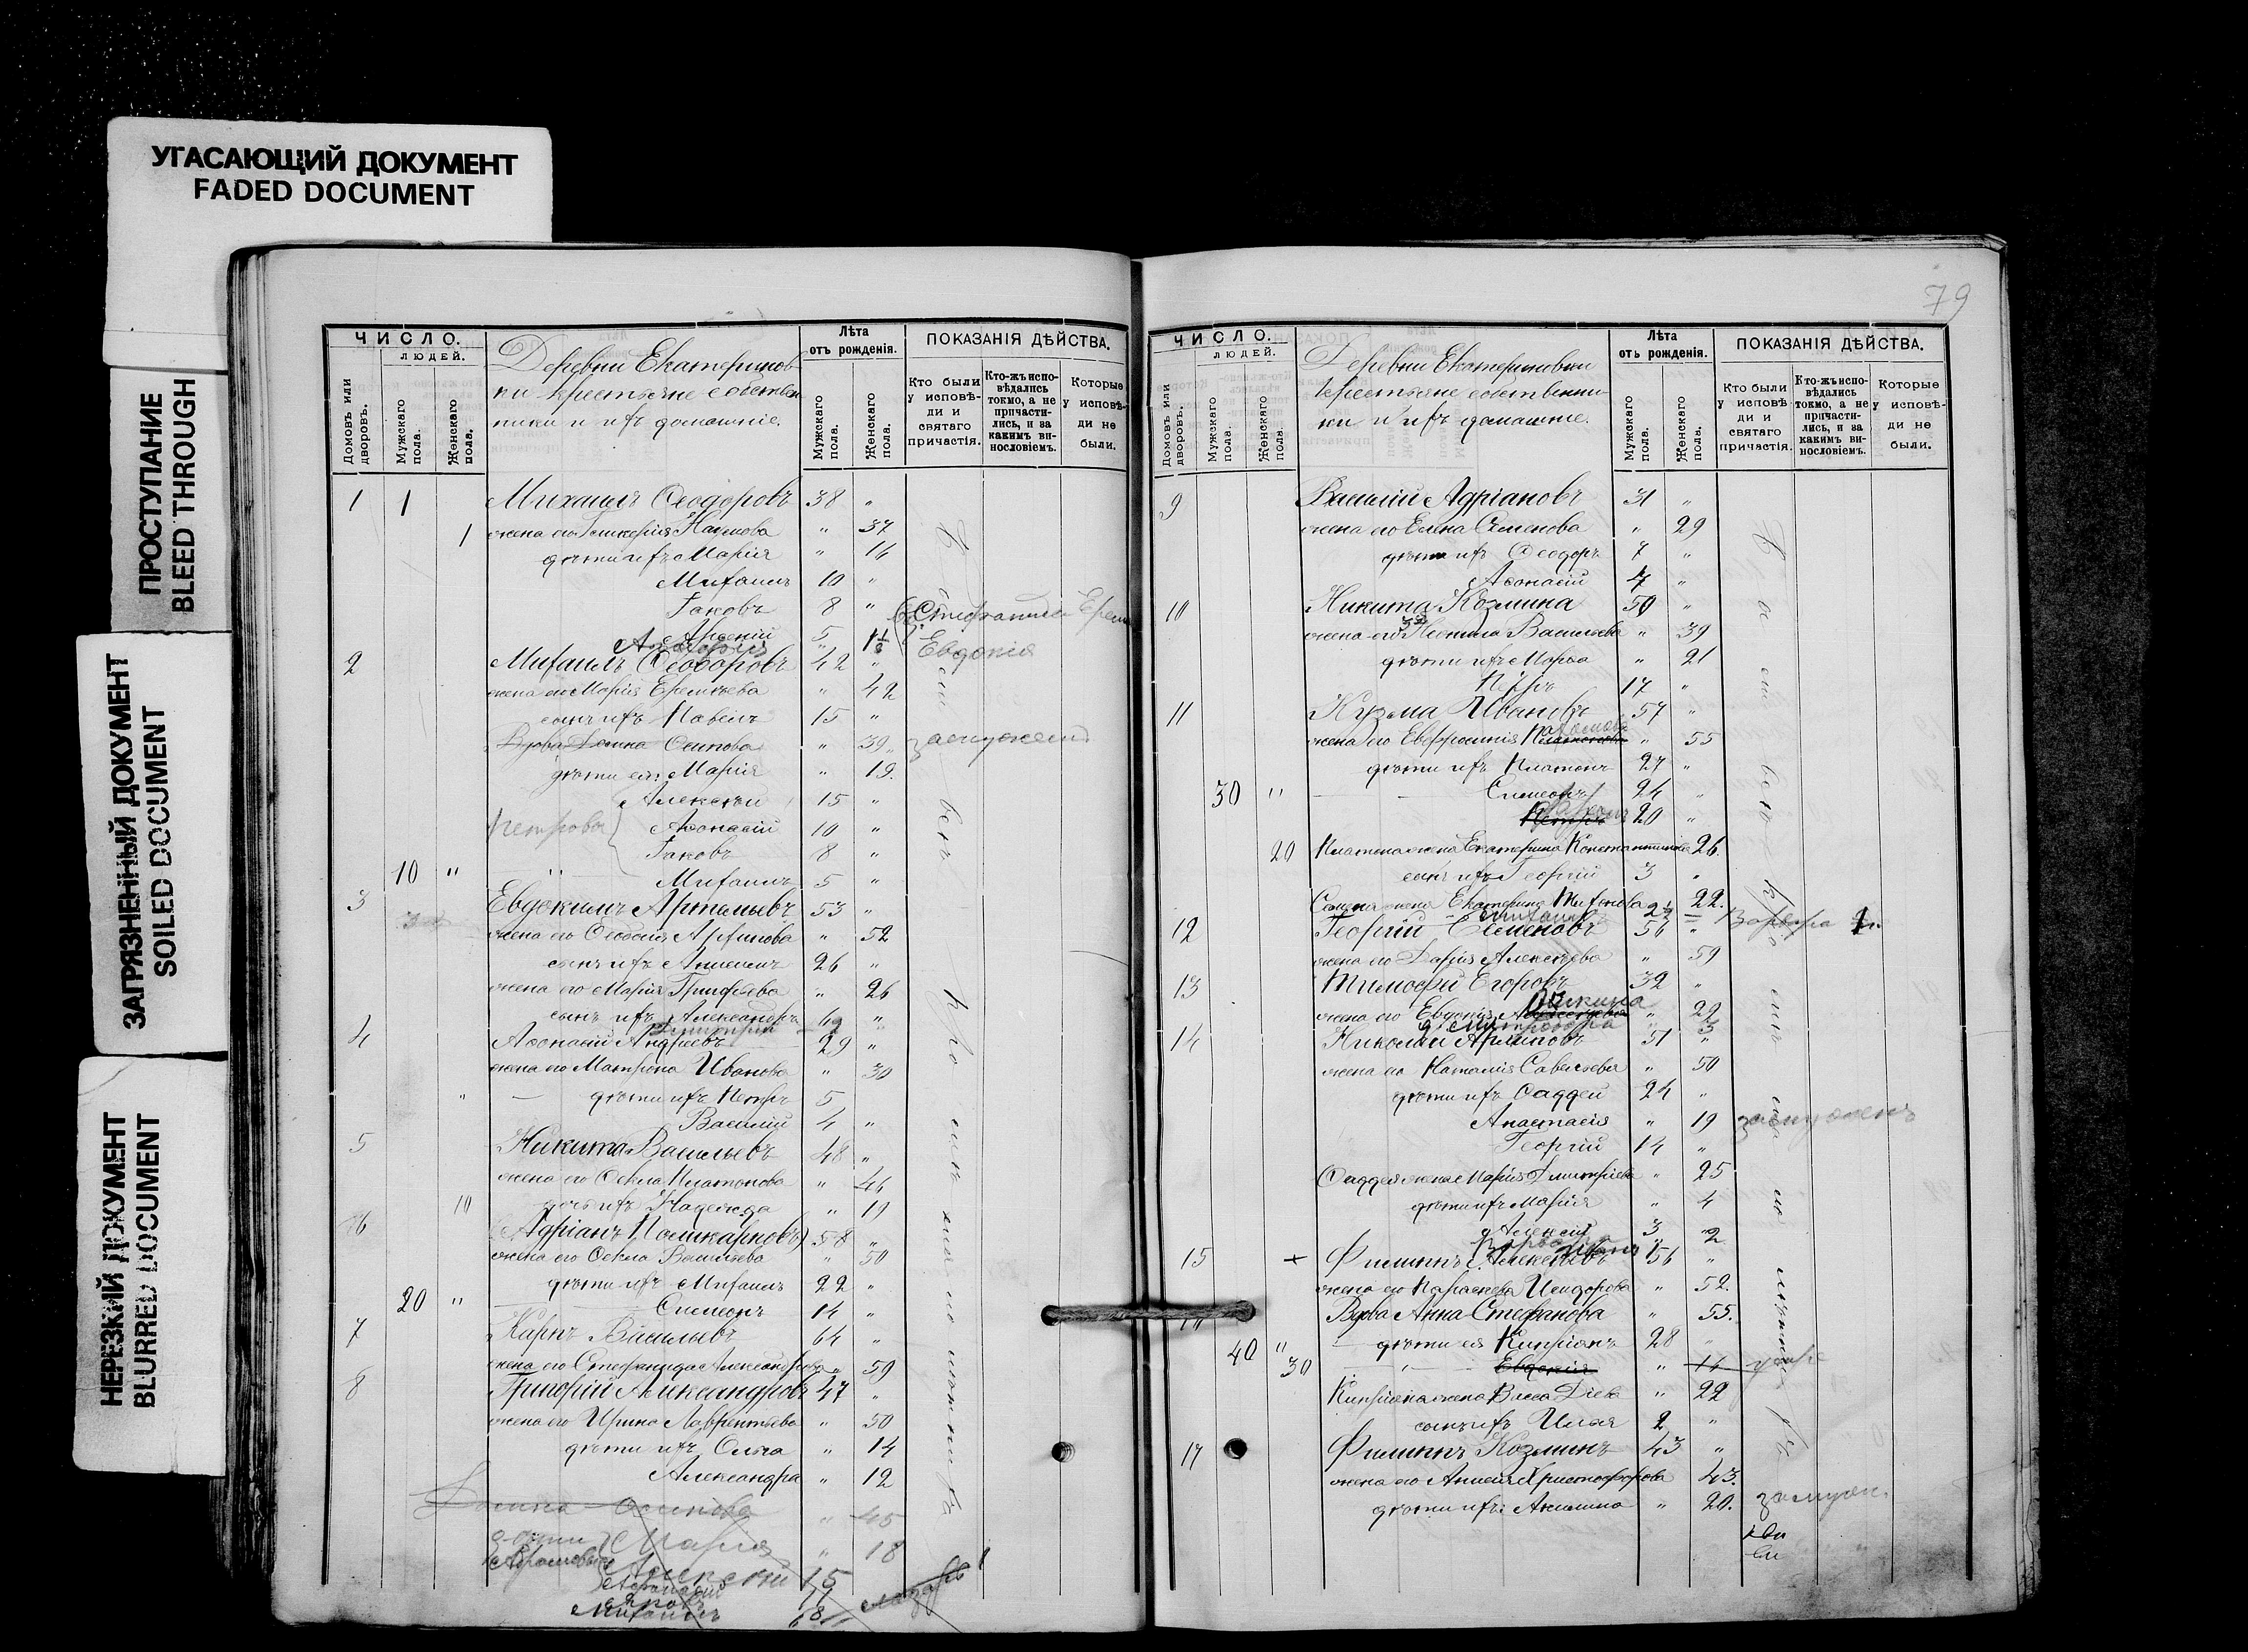 УГАСАЮЩИЙ ДОКУМЕНТ
FADED DOCUMENT
ПРОСТУПАНИЕ
BLEED THROUGH
ЗАГРЯЗНЕННЫЙ ДОКУМЕНТ
SOILED DOCUMENT
НЕРЕЗКИЙ ДОКУМЕНТ
BLURRED DOCUMENT
ЧИСЛО.
ЛЮДЕЙ.
Домовъ или дворовъ.
Мужскаго пола.
Женскаго пола.
Деревни Екатеринов
ки крестьяне собствен
ники и ихъ домашніе.
Лѣта
отъ рожденія.
Мужскаго пола.
Женскаго пола.
ПОКАЗАНІЯ ДѢЙСТВА.
Кто были у исповѣди и святаго причастія.
Кто-жъ исповѣдались токмо, а не причастились, и за какимъ винословіемъ.
Которые у исповѣди не были.
1 1 Михаилъ Ѳеодоровъ 38 "
1 жена его Гликерія Наумова " 37
дѣти ихъ Марія " 14
Михаилъ 10 "
Іаковъ 8 "
Арсеній 5
Евдокія
2 Михаилъ Ѳеодоровъ 42 "
жена его Марія Еремѣева " 42
сынъ ихъ Павелъ 15 "
Вдова Домна Осипова " 39 замужем
дѣти ея: Марія " 19.
Алексѣй 15 "
Петровы Аѳонасій 10 "
Іаковъ 8 "
10 " Михаилъ 5 "
3 Евдокимъ Артемьевъ 53 "
жена его Ѳеодосія Архипова " 52
сынъ ихъ Анисимъ 26 "
жена его Марія Трифоева " 26
сынъ ихъ Александръ
Дмитрій 2
4 Аѳонасій Андреевъ 29 "
жена его Матрона Иванова " 30
" дѣти ихъ Петръ 5
Василій 4 "
5 Никита Васильевъ 48 "
жена его Ѳекла Платонова " 46
10 дочь ихъ Надежда " 19
6 (Адріанъ Поликарповъ) 58 "
жена его Ѳекла Васильева " 50
дѣти ихъ Михаилъ 22 "
20 " Симеонъ 14 "
7 Карпъ Васильевъ 64 "
жена его Стефанида Александрова " 59
8 Григорій Александровъ 47 "
жена его Ирина Лаврентьева " 50
дѣти ихъ Ольга " 14
Александра " 12
Домна Осипова " 45
дѣти Марія " 18
Алексѣй 15
Аѳонасій 11
Яковъ 8
Михаилъ 6
79
ЧИСЛО.
ЛЮДЕЙ.
Домовъ или дворовъ.
Мужскаго пола.
Женскаго пола.
Деревни Екатериновки
крестьяне собственни
ки и ихъ домашніе.
Лѣта
отъ рожденія.
Мужскаго пола.
Женскаго пола.
ПОКАЗАНІЯ ДѢЙСТВА.
Кто были у исповѣди и святаго причастія.
Кто-жъ исповѣдались токмо, а не причастились, и за какимъ винословіемъ.
Которые у исповѣди не были.
9 Василій Адріановъ 31 "
жена его Елена Семенова " 29
дѣти ихъ Ѳеодоръ 7 "
Аѳонасій 4 "
10 Никита Козмина 50 "
жена его Неонила Васильева " 39
дѣти ихъ Марѳа " 21
Петръ 17 "
11 Кузма Ивановъ 57 "
жена его Евфросинія " 55
дѣти ихъ Платонъ 27 "
30 " Симеонъ 24 "
Петръ 20 "
20 Платона жена Екатерина Константинова 26.
сынъ ихъ Георгій 3 "
Семена жена Екатерина Тихонова 22.
Варвара 1
12 Георгій Семеновъ 56 "
жена его Дарія Алексѣева " 59
13 Тимоѳей Егоровъ 32 "
жена его Евдокія " 22
3
14 Николай Архиповъ 51 "
жена его Наталія Савельева " 50
дѣти ихъ Ѳаддей 24 "
Анастасія " 19 замужемъ
Георгій 14 "
Ѳаддея жена Марія Дмитріева " 25
дѣти ихъ Марія " 4
Алексѣй 3 "
Варвара 2
15 + Филиппъ Алексѣевъ 56 "
жена его Параскева Исидорова " 52.
Вдова Анна Стефанова " 55.
40 " дѣти ея Кипріанъ 28 "
30 Евдокія " 14 умре
Кипріана жена Васса Діева " 22
сынъ ихъ Илія 2 "
17 Филиппъ Козминъ 43 "
жена его Анисія Христофорова 43.
дѣти ихъ: Акилина " 20. замуж.